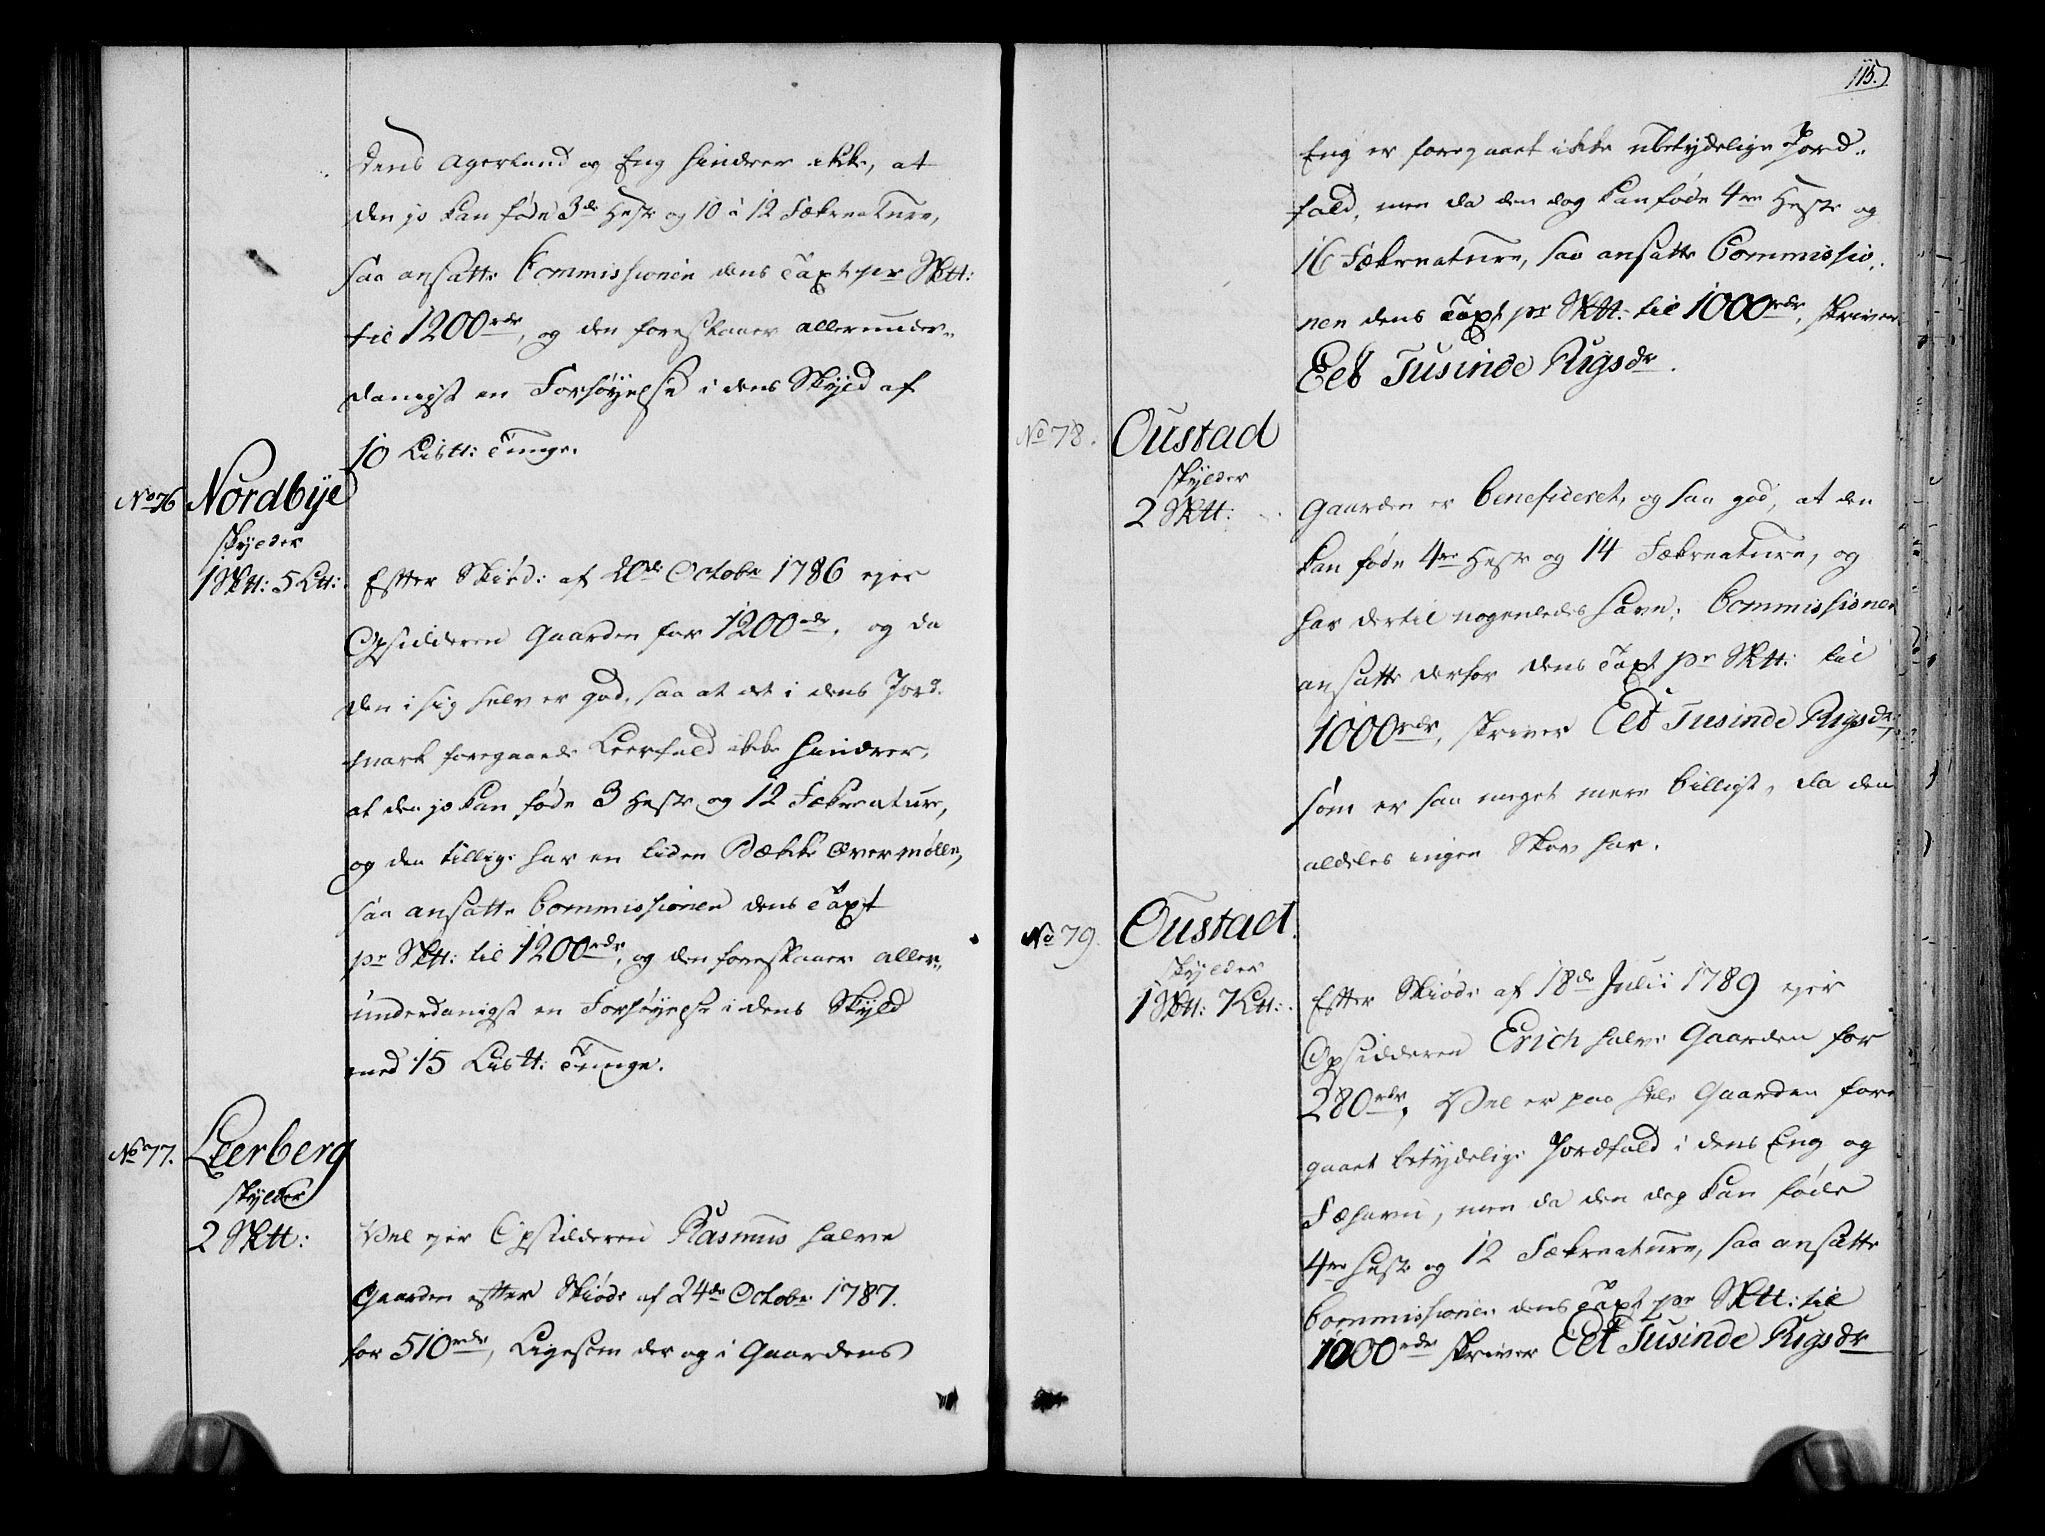 dens Agerland og Eng hindrer ikke, at
den jo kan føde 3de Heste og 10 á 12 Fækreature,
saa ansatte Commissionen dens Taxt pr Sktt:
til 1200rdr, og den foreslaaer allerunder-
danigst en Forhøyelse i dens Skyld af
10 Listt: Tunge.
No 76 Nordbye
skylder
1 Sktt: 5 Ltt:
Efter Skiøde af 20de Octobr 1786 ejer
Opsidderen Gaarden for 1200rdr, og da
den i sig selv er god, saa at det i dens Jord-
smark foregaaede Leerfald ikke hindrer,
at den jo kan føde 3 Heste og 12 Fækreature,
og den tillige har en liden Bække Qværnmølle,
saa ansatte Commissionen dens Taxt
pr Sktt: til 1200rdr, og den foreslaaer aller-
underdanigst en Forhøyelse i dens Skyld
med 15 Listt: Tunge.
No 77. Leerberg
skylder
2 Sktt:
Vel ejer Opsidderen Rasmus halve
Gaarden efter Skiøde af 24de Octobr 1787.
for 510rdr, Ligesom der og i Gaardens
115.
Eng er foregaaet ikke ubetydelige Jord-
fald, men da den dog kan føde 4re Heste og
16 Fækreature, saa ansatte Commissio-
nen dens Taxt pr Sktt: til 1000rdr, skriver
Eet Tusinde Rigsdr.
No 78. Oustad
skylder
2 Sktt:
Gaarden er beneficeret, og saa god, at den
kan føde 4re Heste og 14 Fækreature, og
har dertil nogenledes Havn; Commissionen
ansatte derfor dens Taxt pr Sktt: til
1000rdr, skriver Eet Tusinde Rigsdr,
som er saa meget mere billigt, da den
aldeles ingen Skov har.
No 79. Oustad.
skylder
1 Sktt: 7 Ltt:
Efter Skiøde af 18de Julii 1789 ejer
Opsidderen Erich halve Gaarden for
280rdr, Vel er paa hele Gaarden fore
gaaet betydelige Jordfald i dens Eng og
Fæhavn, men da den dog kan føde
4re Heste og 12 Fækreature, saa ansatte
Commissionen dens Taxt pr Sktt: til
1000rdr skriver Eet Tusinde Rigsdr